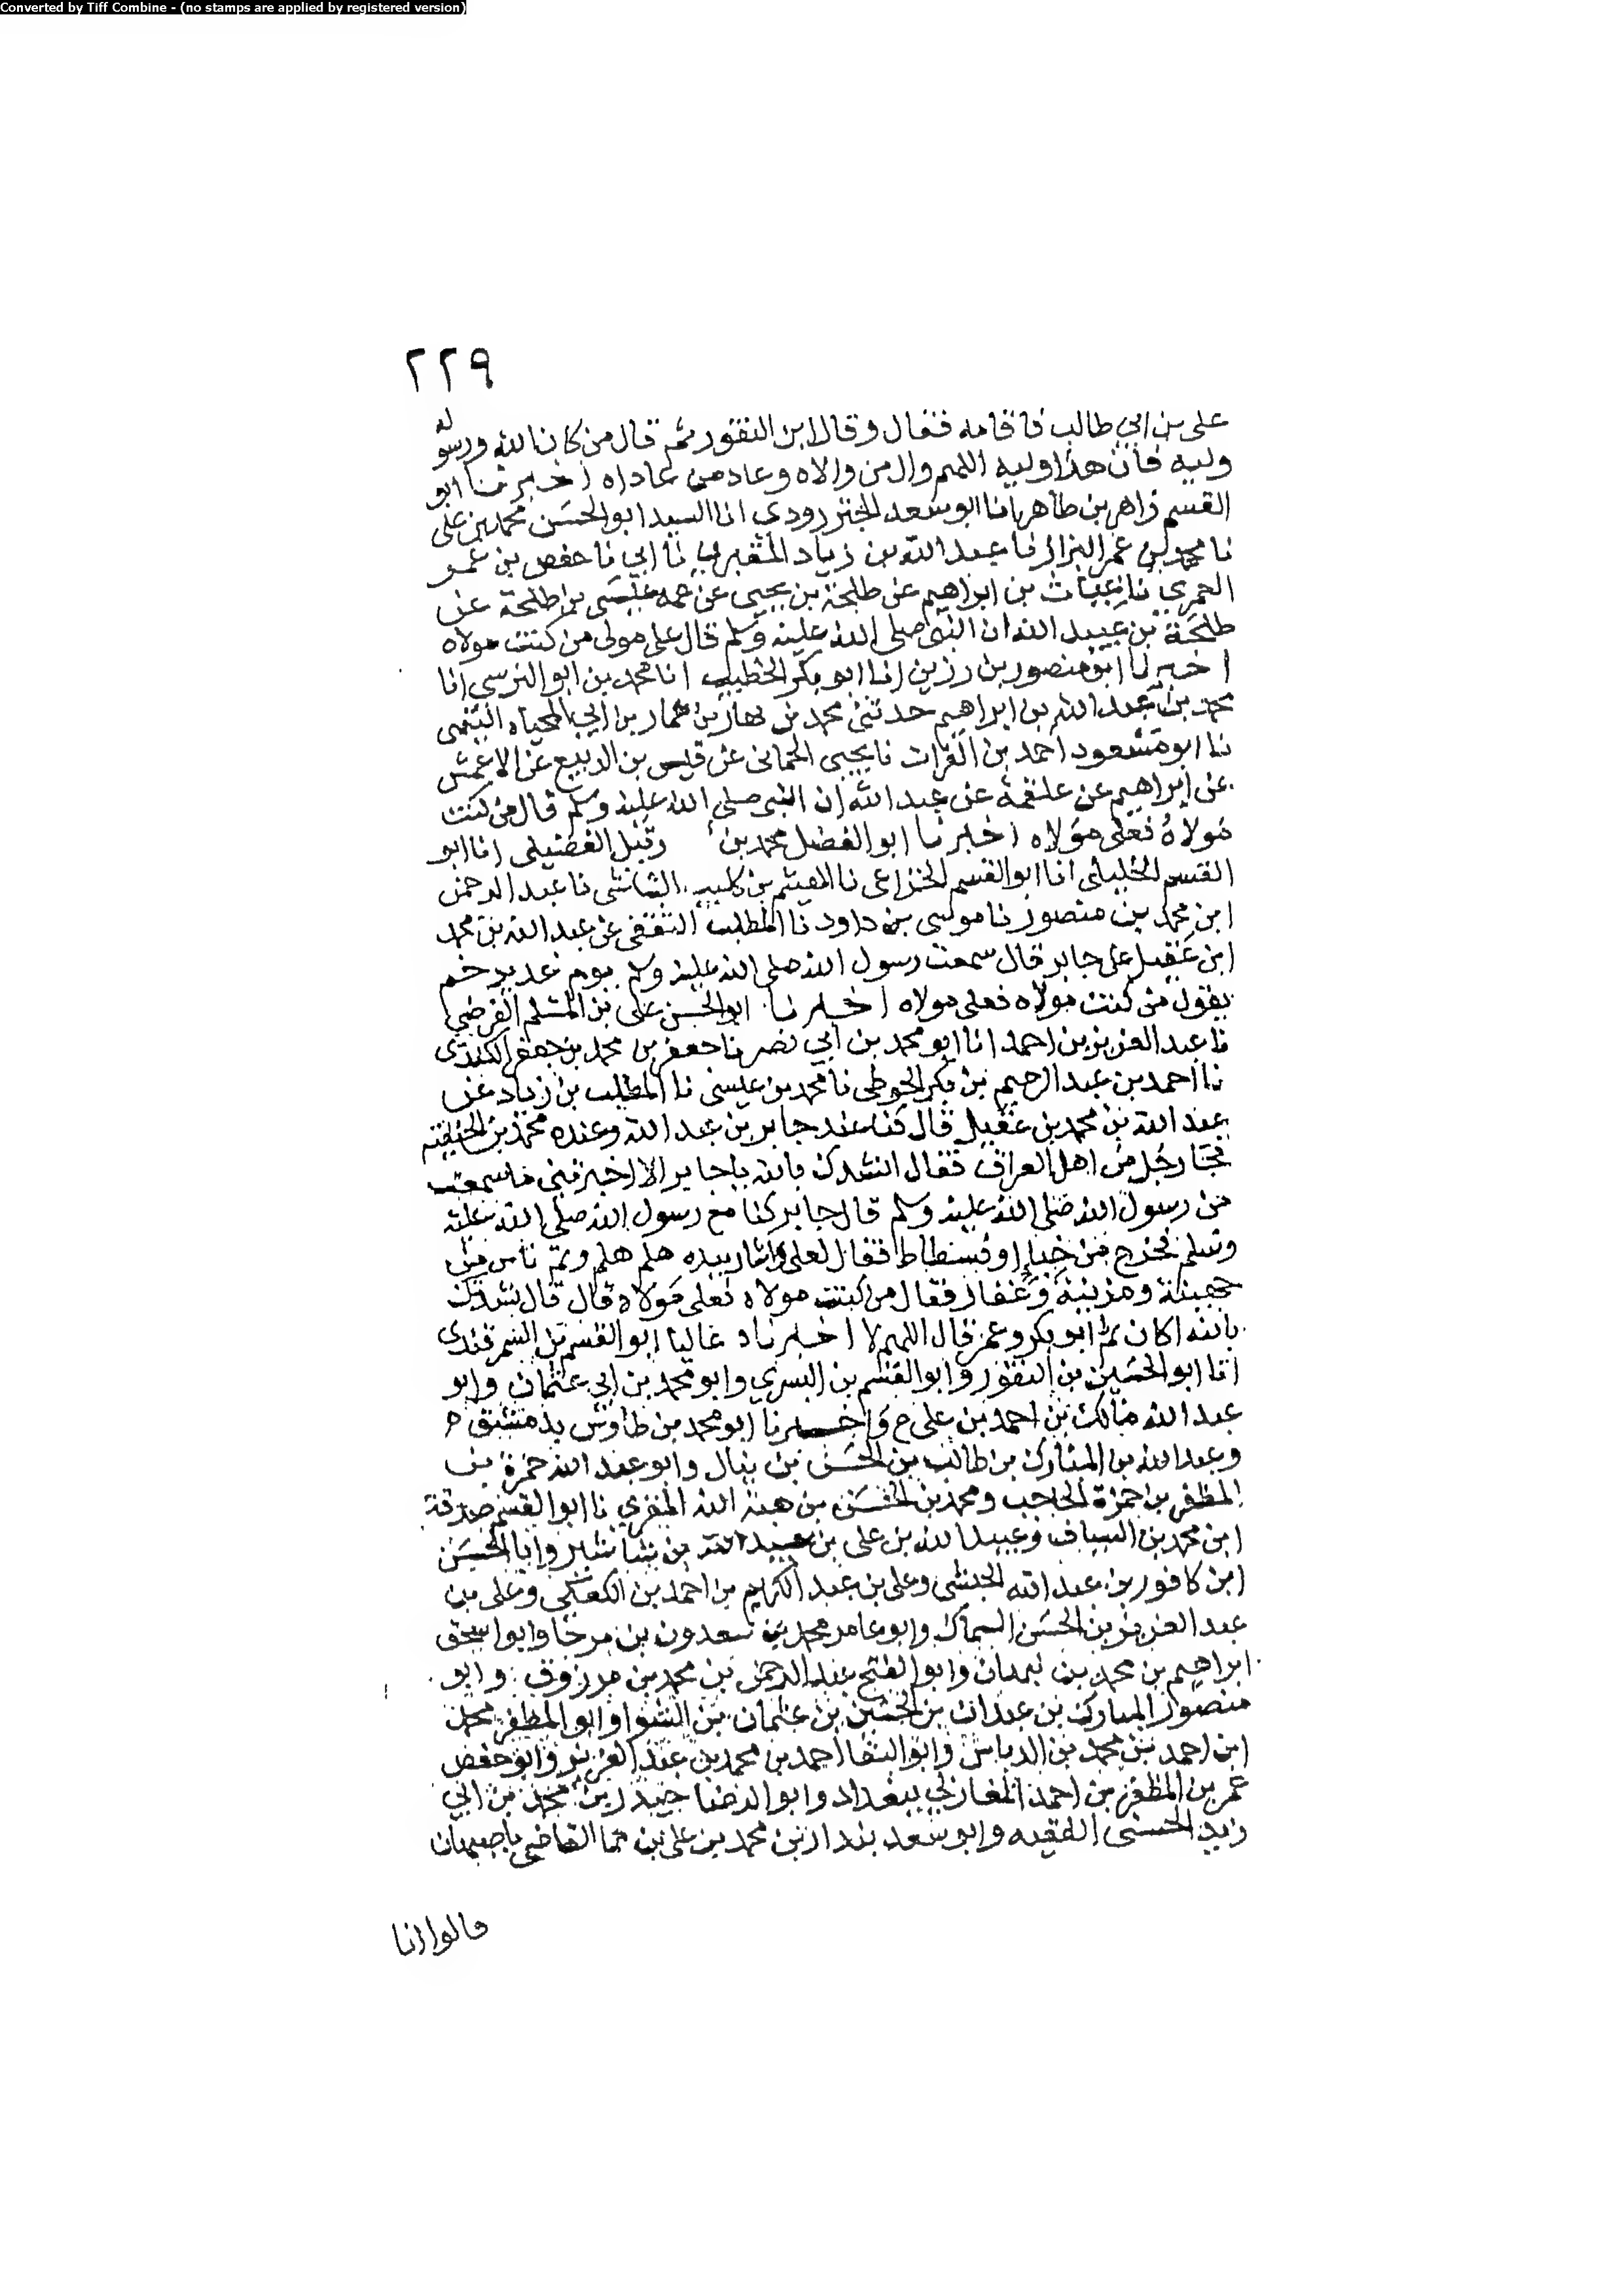 Converted by Tiff Combine - (no stamps are applied by registered version)
٢٢٩
على بن ابي طالب فاقامه فقال وقال ابن النقور ثم قال من كان الله ورسوله
وليه فان هذا وليه اللهم وال من والاه وعاد من عاداه اخبرنا ابو
القسم زاهر بن طاهر انا ابو سعد الجنزرودي انا السيد ابو الحسن محمد بن على
نا محمد بن عمر البزار نا عبد الله بن زياد المقبري نا ابي نا حفص بن عمر
العمري نا غياث بن ابراهيم عن طلحة بن يحيى عن عمه عيسى بن طلحة عن
طلحة بن عبيد الله ان النبي صلى الله عليه وسلم قال على مولى من كنت مولاه
اخبرنا ابو منصور بن رزين انا ابو بكر الخطيب انا محمد بن ابو النرسي انا
محمد بن عبد الله بن ابراهيم حدثنى محمد بن عمار بن ابي المحياه التيمى
نا ابو مسعود احمد بن الفرات نا يحيى الحمانى عن قيس بن الربيع عن الاعمش
عن ابراهيم عن علقمة عن عبد الله ان النبى صلى الله عليه وسلم قال من كنت
مولاه فعلى مولاه اخبرنا ابو الفضل محمد بن الفضيلى انا ابو
القسم الخليلى انا ابو القسم الخزاعى نا الهيثم بن كليب الشاشى نا عبد الرحمن
ابن محمد بن منصور نا موسى بن داود نا المطلب الثقفى عن عبد الله بن محمد
ابن عقيل عن جابر قال سمعت رسول الله صلى الله عليه وسلم يوم غدير خم
يقول من كنت مولاه فعلى مولاه اخبرنا ابو الحسن على بن المسلم الفرضى
نا عبد العزيز بن احمد انا ابو محمد بن ابي نصر نا جعفر بن محمد بن جعفر الكندى
نا احمد بن عبد الرحيم بن بكر الحوطى نا محمد بن عيسى نا المطلب بن زياد عن
عبد الله بن محمد بن عقيل قال كنا عند جابر بن عبد الله وعنده محمد بن الحنفية
فجا رجل من اهل العراق فقال انشدك بالله يا جابر الا اخبرتنى ما سمعت
من رسول الله صلى الله عليه وسلم قال جابر كنا مع رسول الله صلى الله عليه
وسلم فخرج من خبا او فسطاط فقال لعلى واشار بيده هلم هلم وثم ناس من
جهينة ومزينة وغفار فقال من كنت مولاه فعلى مولاه قال قال نشدتك
بالله اكان ثم ابو بكر وعمر قال اللهم لا اخبرناه عاليا ابو القسم بن السمرقندى
انا ابو الحسين بن النقور وابو القسم بن البسري وابو محمد بن ابي عثمان وابو
عبد الله مالك بن احمد بن على ح واخبرنا ابو محمد بن طاوس بدمشق
وعبد الله بن المبارك بن طالب بن الحسن بن ينال وابو عبد الله حمزة بن
المظفر بن حمزة الحاجب ومحمد بن الحسن بن هبة الله المقري نا ابو القسم صدقة
ابن محمد بن السياف وعبيد الله بن على بن عبيد الله بن شاشير وابا الحسن
ابن كافور بن عبد الله الحبشى وعلى بن عبد الكريم بن احمد بن الكعكى وعلى بن
عبد العزيز بن الحسن السماك وابو عامر محمد بن سعدون بن مرجا وابو اسحق
ابراهيم بن محمد بن نبهان وابو الفتح عبد الرحمن بن محمد بن مرزوق وابو
منصور المبارك بن عبدان بن الحسين بن عثمان بن الشوا وابو المظفر محمد
ابن احمد بن محمد بن الدباس وابو البقا احمد بن محمد بن عبد العزيز وابو حفص
عمر بن المظفر بن احمد المغازلي ببغداد وابو الرضا حيدر بن محمد بن ابي
زيد الحسنى الفقيه وابو سعد بندار بن محمد بن على بن مما القاضى باصبهان
قالوا انا